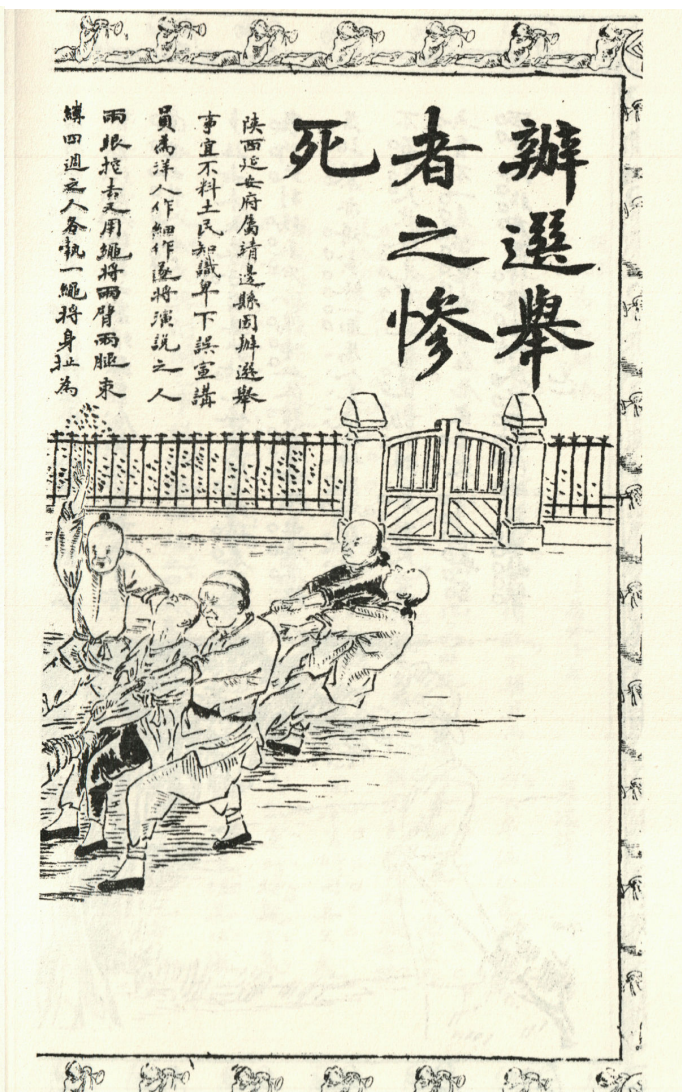 辦選舉
者之慘
死
陝西延安府屬靖邊縣因辦選舉
事宜不料土民知識卑下誤宣講
員為洋人作細作遂將演說之人
兩眼挖去又用繩將兩臂兩腿束
縛四週之人各執一繩將身扯為